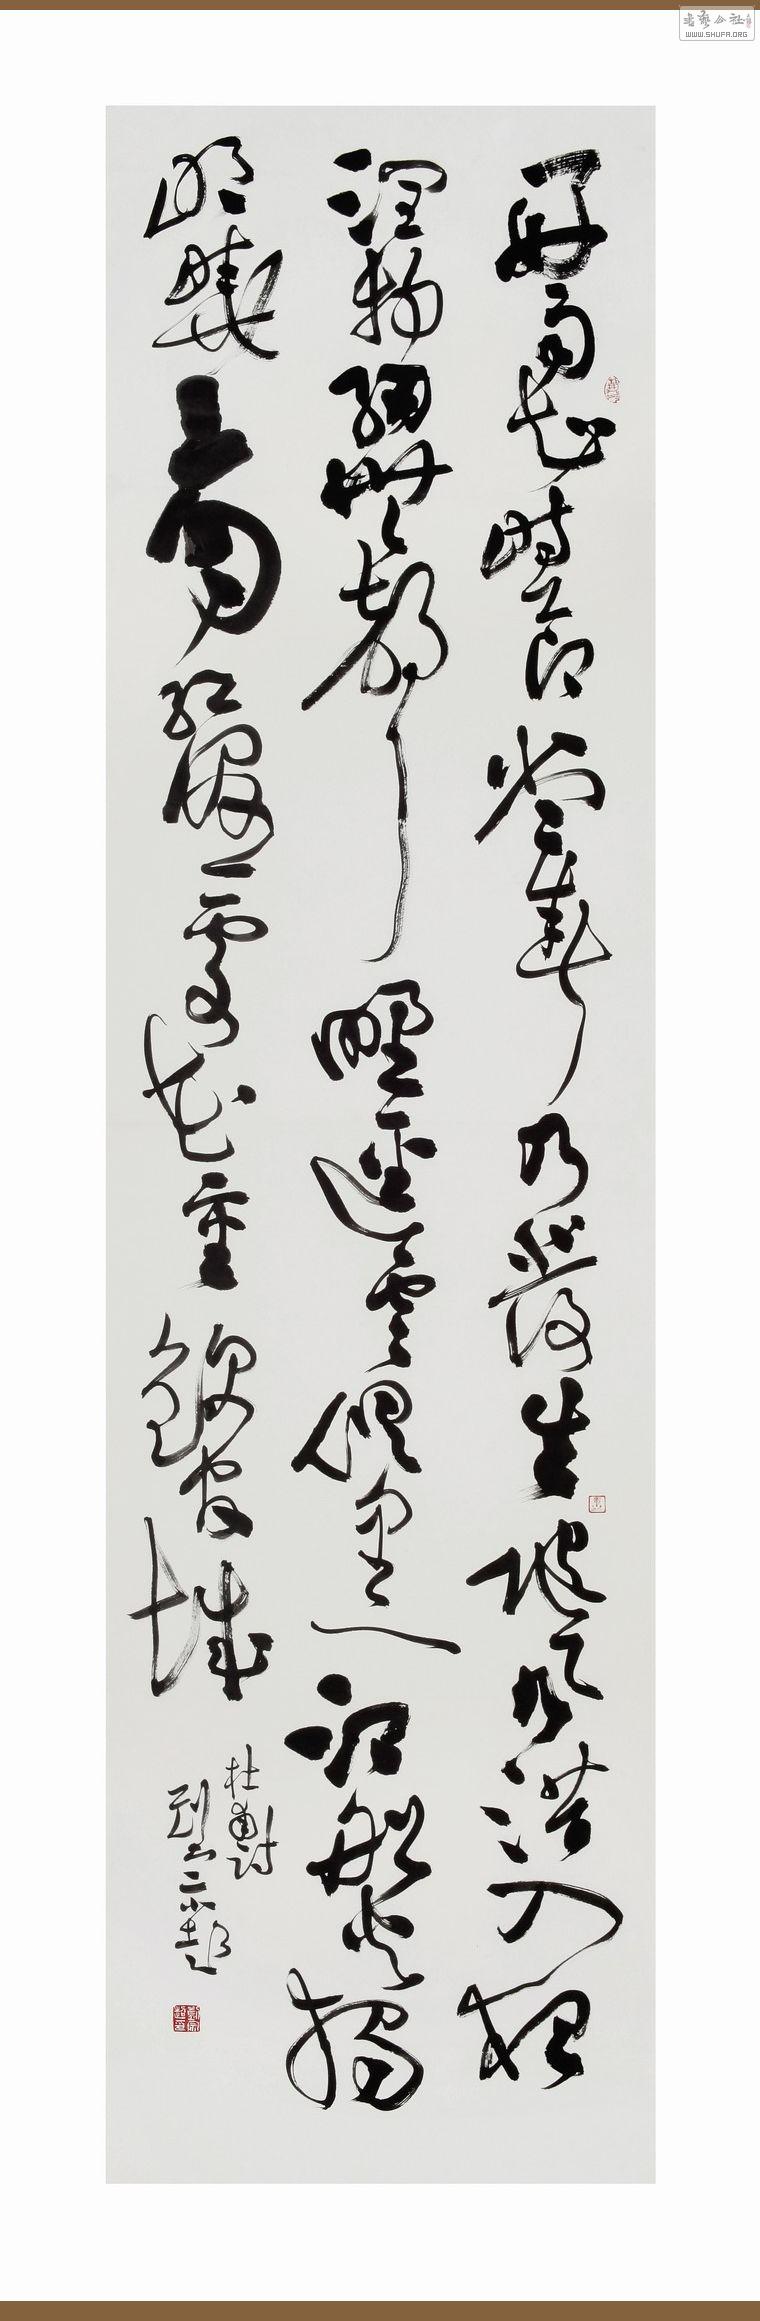 書藝公社
WWW.SHUFA.ORG
好雨知時節當春乃發生隨風潛入夜
潤物細無聲野徑雲俱黑江船火獨
明曉看紅濕處花重錦官城
杜甫詩